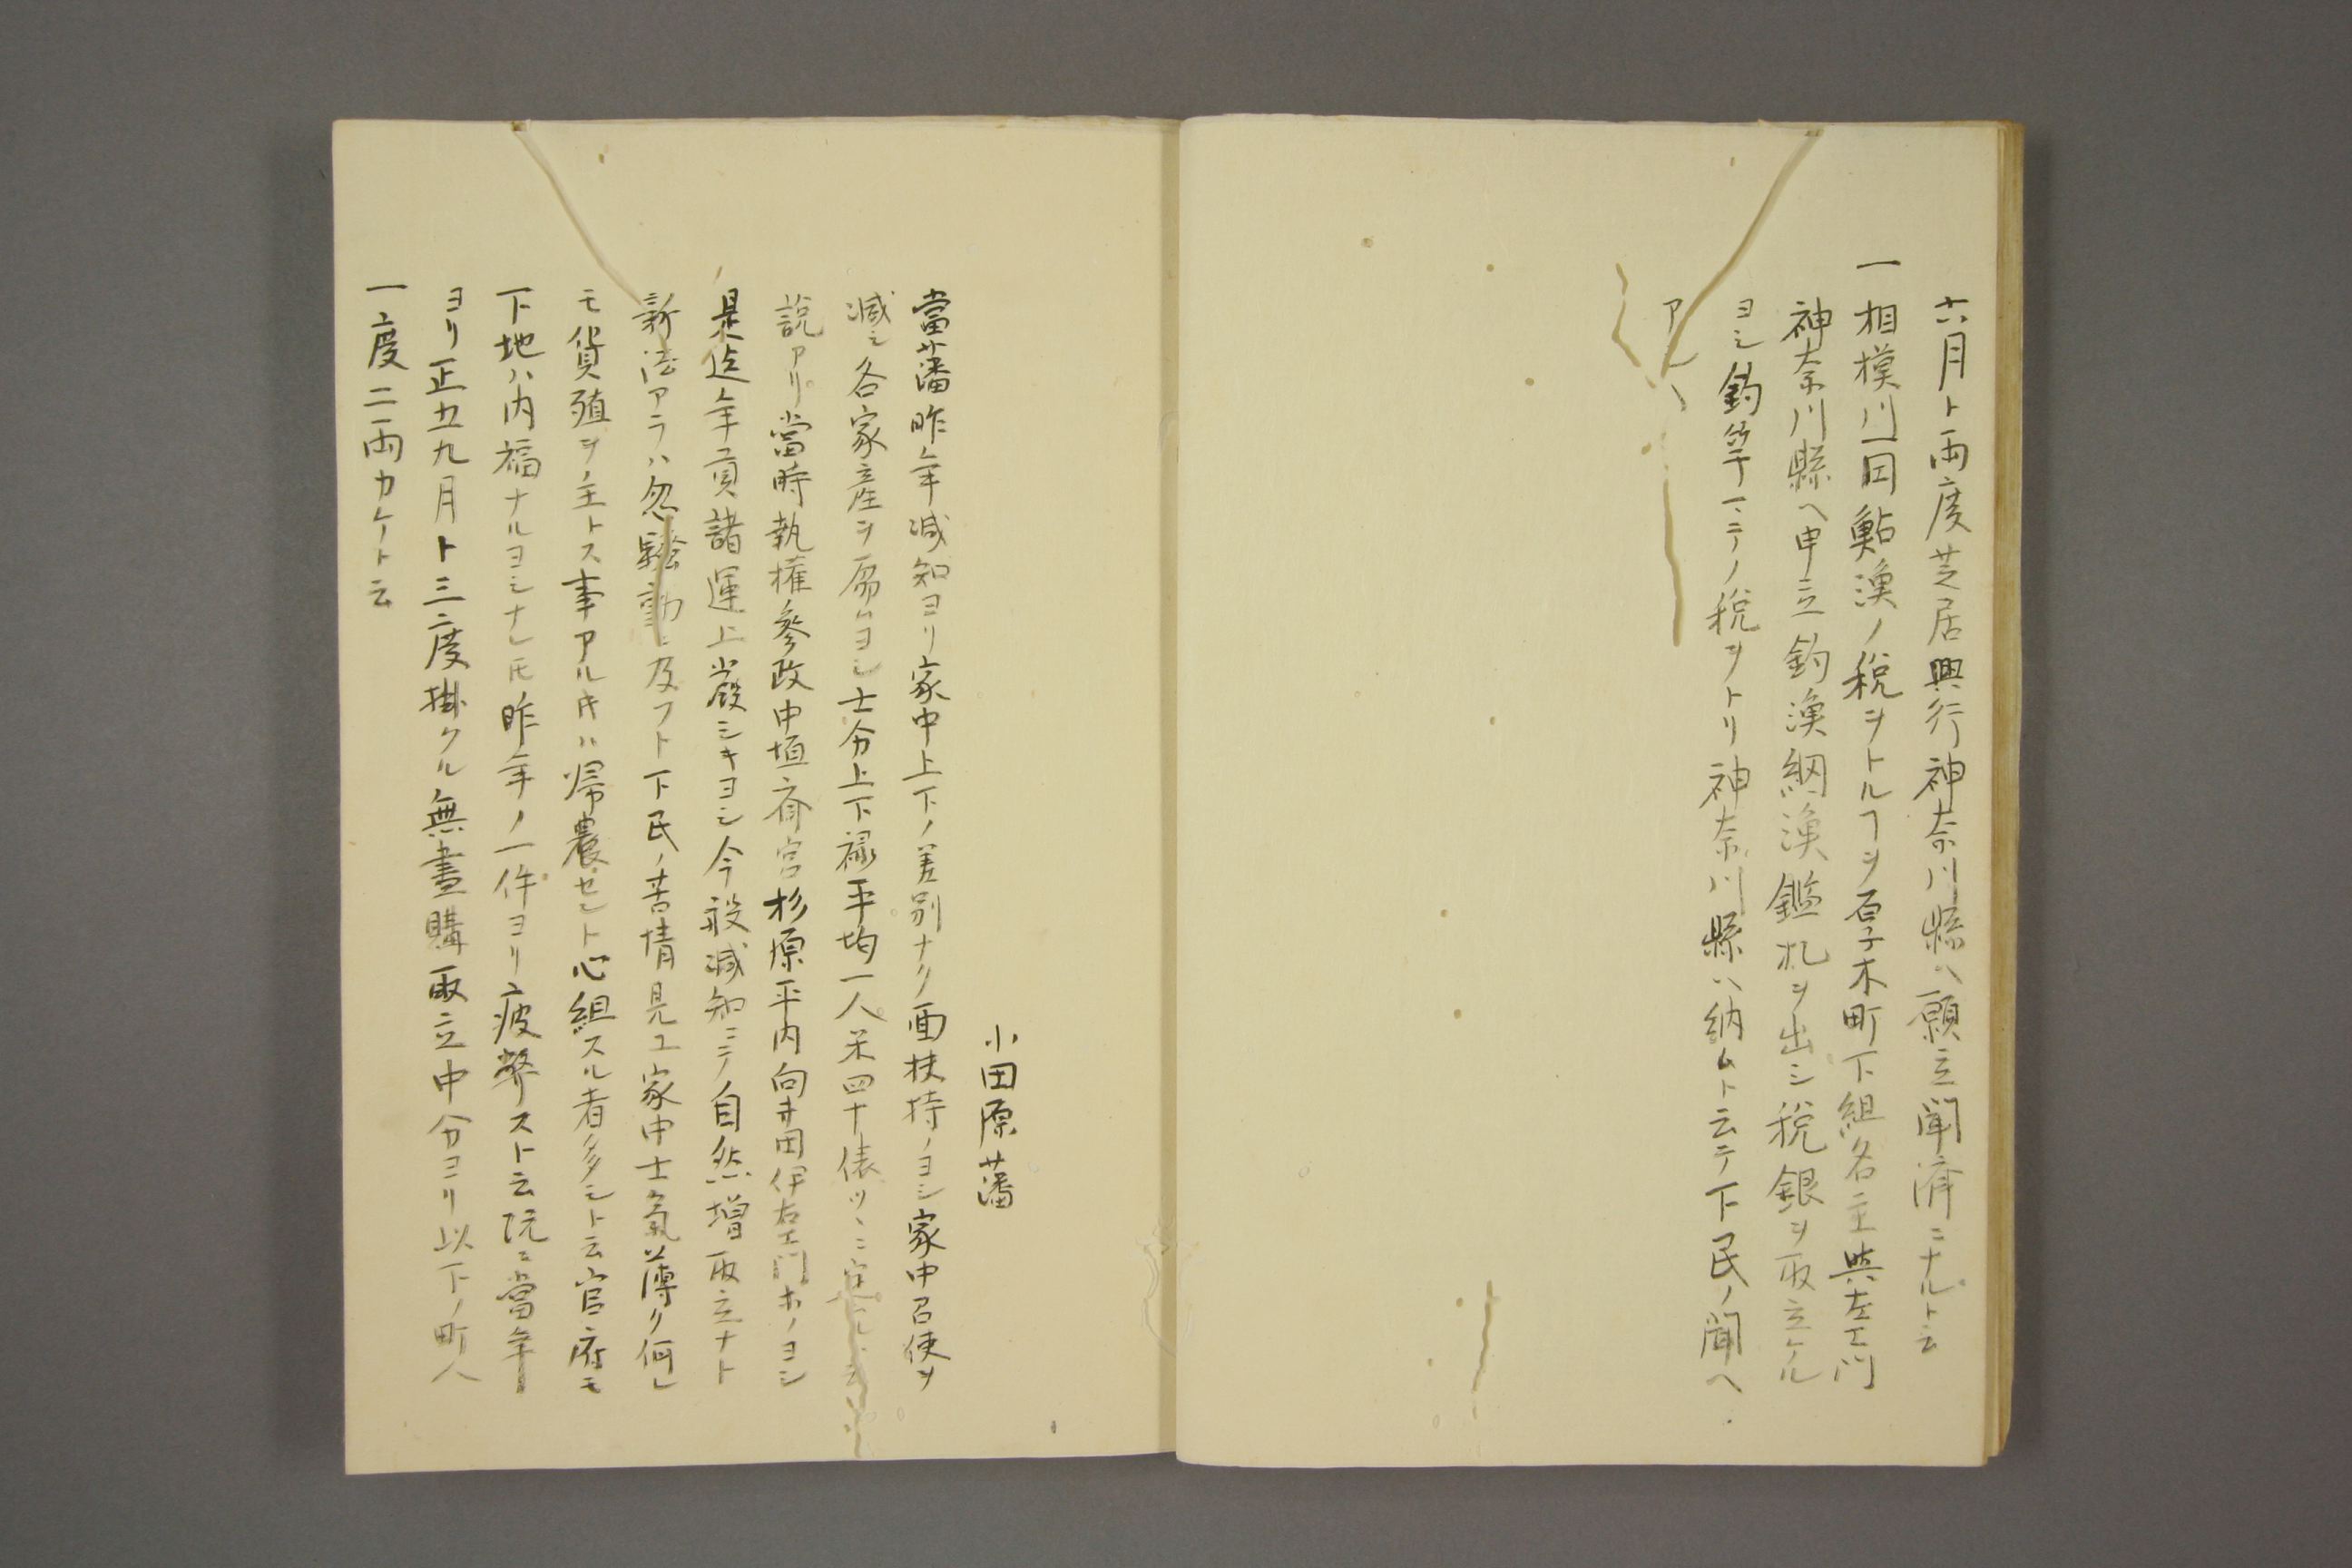 六月ト両度芝居興行神奈川縣ヘ願立聞済ニナルト云
一相模川一囙鮎漁ノ税ヲトルヿヲ厚木町下組名主與左エ門
神奈川縣ヘ申立釣漁網漁鑑札ヲ出シ税銀ヲ取立ケル
ヨシ釣竿ニテノ税ヲトリ神奈川縣ヘ納ムト云テ下民ノ聞ヘ
アシ
小田原藩
當藩昨年減知ヨリ家中上下ノ差別ナク面扶持ノヨシ家中召使ヲ
減シ各家産ヲ屬ムヨシ士分上下禄平均一人米四十俵ツヽニ定ムル
説アリ當時執権參政中垣斎宮杉原平内向井田伊右エ門ホノヨシ
是迄年貢諸運上嚴シキヨシ今般減知ニテ自然増取立ナト
新法アラハ忽騒動ニ及フト下民ノ苦情見エ家中士氣薄ク何レ
モ貨殖ヲ主トス事アルキハ帰農セント心組スル者多シト云官府モ
下地ハ内福ナルヨシナレ𪜈昨年ノ一件ヨリ疲弊スト云既ニ當年
ヨリ正五九月ト三度掛クル無盡購取立中分ヨリ以下ノ町人
一度二両カケト云